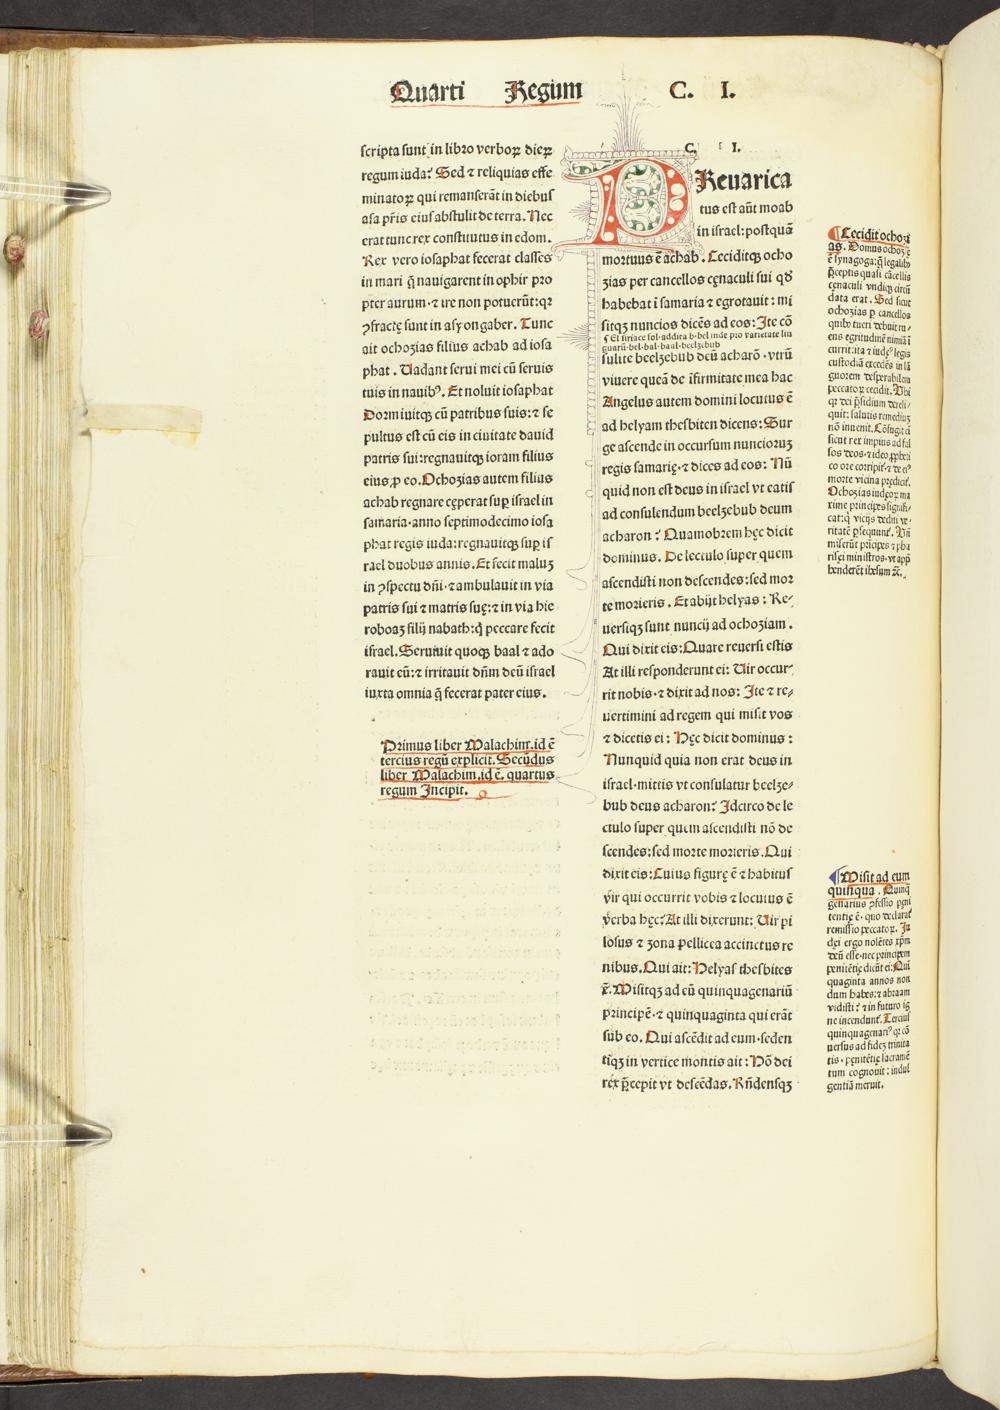 Quarti Regum C. I.
scripta sunt in libro verboꝝ dieꝝ
regum iuda? Sed ⁊ reliquias effe
minatoꝝ qui remanserāt in diebus
asa pr̄is eius abstulit de terra. Nec
erat tunc rex constitutus in edom.
Rex vero iosaphat fecerat classes
in mari q̄ nauigarent in ophir pro
pter aurum·⁊ ire non potuerūt:qꝛ
ꝯfracte sunt in asyongaber. Tunc
ait ochozias filius achab ad iosa
phat. Uadant serui mei cū seruis
tuis in nauibꝰ. Et noluit iosaphat
Dormiuitqꝫ cū patribus suis:⁊ se
pultus est cū eis in ciuitate dauid
patris sui:regnauitqꝫ ioram filius
eius ꝓ eo. Ochozias autem filius
achab regnare cęperat suꝑ israel in
samaria·anno septimodecimo iosa
phat regis iuda:regnauitqꝫ suꝑ is
rael duobus annis. Et fecit maluꝫ
in ꝯspectu dn̄i·⁊ ambulauit in via
patris sui ⁊ matris suę:⁊ in via hie
roboaꝫ filij nabath:q̇ peccare fecit
israel. Seruiuit quoqꝫ baal ⁊ ado
rauit eū:⁊ irritauit dn̄m deū israel
iuxta omnia q̄ fecerat pater eius.
Primus liber Malachim.id ē
tercius regū explicit. Secūdus
liber Malachim,id ē. quartus
regum Incipit.
C. I.
PReuarica
tus est aūt moab
in israel:postquā
mortuus ē achab. Ceciditqꝫ ocho
zias per cancellos cęnaculi sui qđ
habebat ī samaria ⁊ egrotauit: mi
sitqꝫ nuncios dicēs ad eos: Ite cō
¶ El siriace sol·addita b·bel inde pro varietate lin
guarū·bel·bal·baal·beelzebub
sulite beelzebub deū acharō·vtrū
viuere queā de īfirmitate mea hac
Angelus autem domini locutus ē
ad helyam thesbiten dicens: Sur
ge ascende in occursum nuncioruꝫ
regis samarię·⁊ dices ad eos: Nū
quid non est deus in israel vt eatis
ad consulendum beelzebub deum
acharon? Quamobrem hęc dicit
dominus. De lectulo super quem
ascendisti non descendes:sed mor
te morieris. Et abijt helyas: Re⸗
uersiqꝫ sunt nuncij ad ochoziam.
Qui dixit eis: Quare reuersi estis
At illi responderunt ei: Uir occur⸗
rit nobis·⁊ dixit ad nos: Ite ⁊ re⸗
uertimini ad regem qui misit vos
⁊ dicetis ei: Hęc dicit dominus:
Nunquid quia non erat deus in
israel·mittis vt consulatur beelze⸗
bub deus acharon? Idcirco de le
ctulo super quem ascendisti nō de
scendes:sed morte morieris. Qui
dixit eis: Cuius figurę ē ⁊ habitus
vir qui occurrit vobis ⁊ locutus ē
verba hęc? At illi dixerunt: Uir pi
losus ⁊ zona pellicea accinctus re
nibus. Qui ait: Helyas thesbites
ē. Misitqꝫ ad eū quinquagenariū
principē·⁊ quinquaginta qui erāt
sub eo. Qui ascēdit ad eum·seden
tiqꝫ in vertice montis ait: Hō dei
rex p̄cepit vt descēdas. Rn̄densqꝫ
¶ Cecidit ochozi
as. Domus ochozie
ē synagoga:q̄ legalibꝰ
p̄ceptis quasi cācellis
cęnaculi vndiqꝫ circū
data erat. Sed sicut
ochozias ꝑ cancellos
custodiā excedēs in lā
guorem desperabilem
peccatoꝝ cecidit. Vbi
quit: salutis remediuꝫ
nō inuenit. Cōfugit eī
sicut rex impius ad fal
sos deos·⁊ ideo ꝓpheti
co ore corripit̄·⁊ de eiꝰ
morte vicina p̄dicit̄.
Ochozias iudęoꝝ ma
xime principes signifi⸗
cat:q̇ vicijs dediti ve⸗
ritatē ꝑsequunt̄. Vn̄
miserūt pricipes ⁊ pha
risęi ministros·vt app̄
henderēt ihesum ⁊c̄.
¶ Misit ad eum
quinqua. Quinq
genarius ꝓfessio pęni
tentię ē· quo declarat̄
remissio peccatoꝝ. Iu
dęi ergo nolētes xp̄m
deū esse·nec principem
penitētię dicūt ei: Quī
quaginta annos non
dum habes:⁊ abraam
vidisti? ⁊ in futuro ig
ne incendunt̄. Tercius
quinquagenariꝰ qꝛ cō
uersus ad fideꝫ trinita
tis·pęnitētię sacramē
tum cognouit: indul
gentiā meruit.